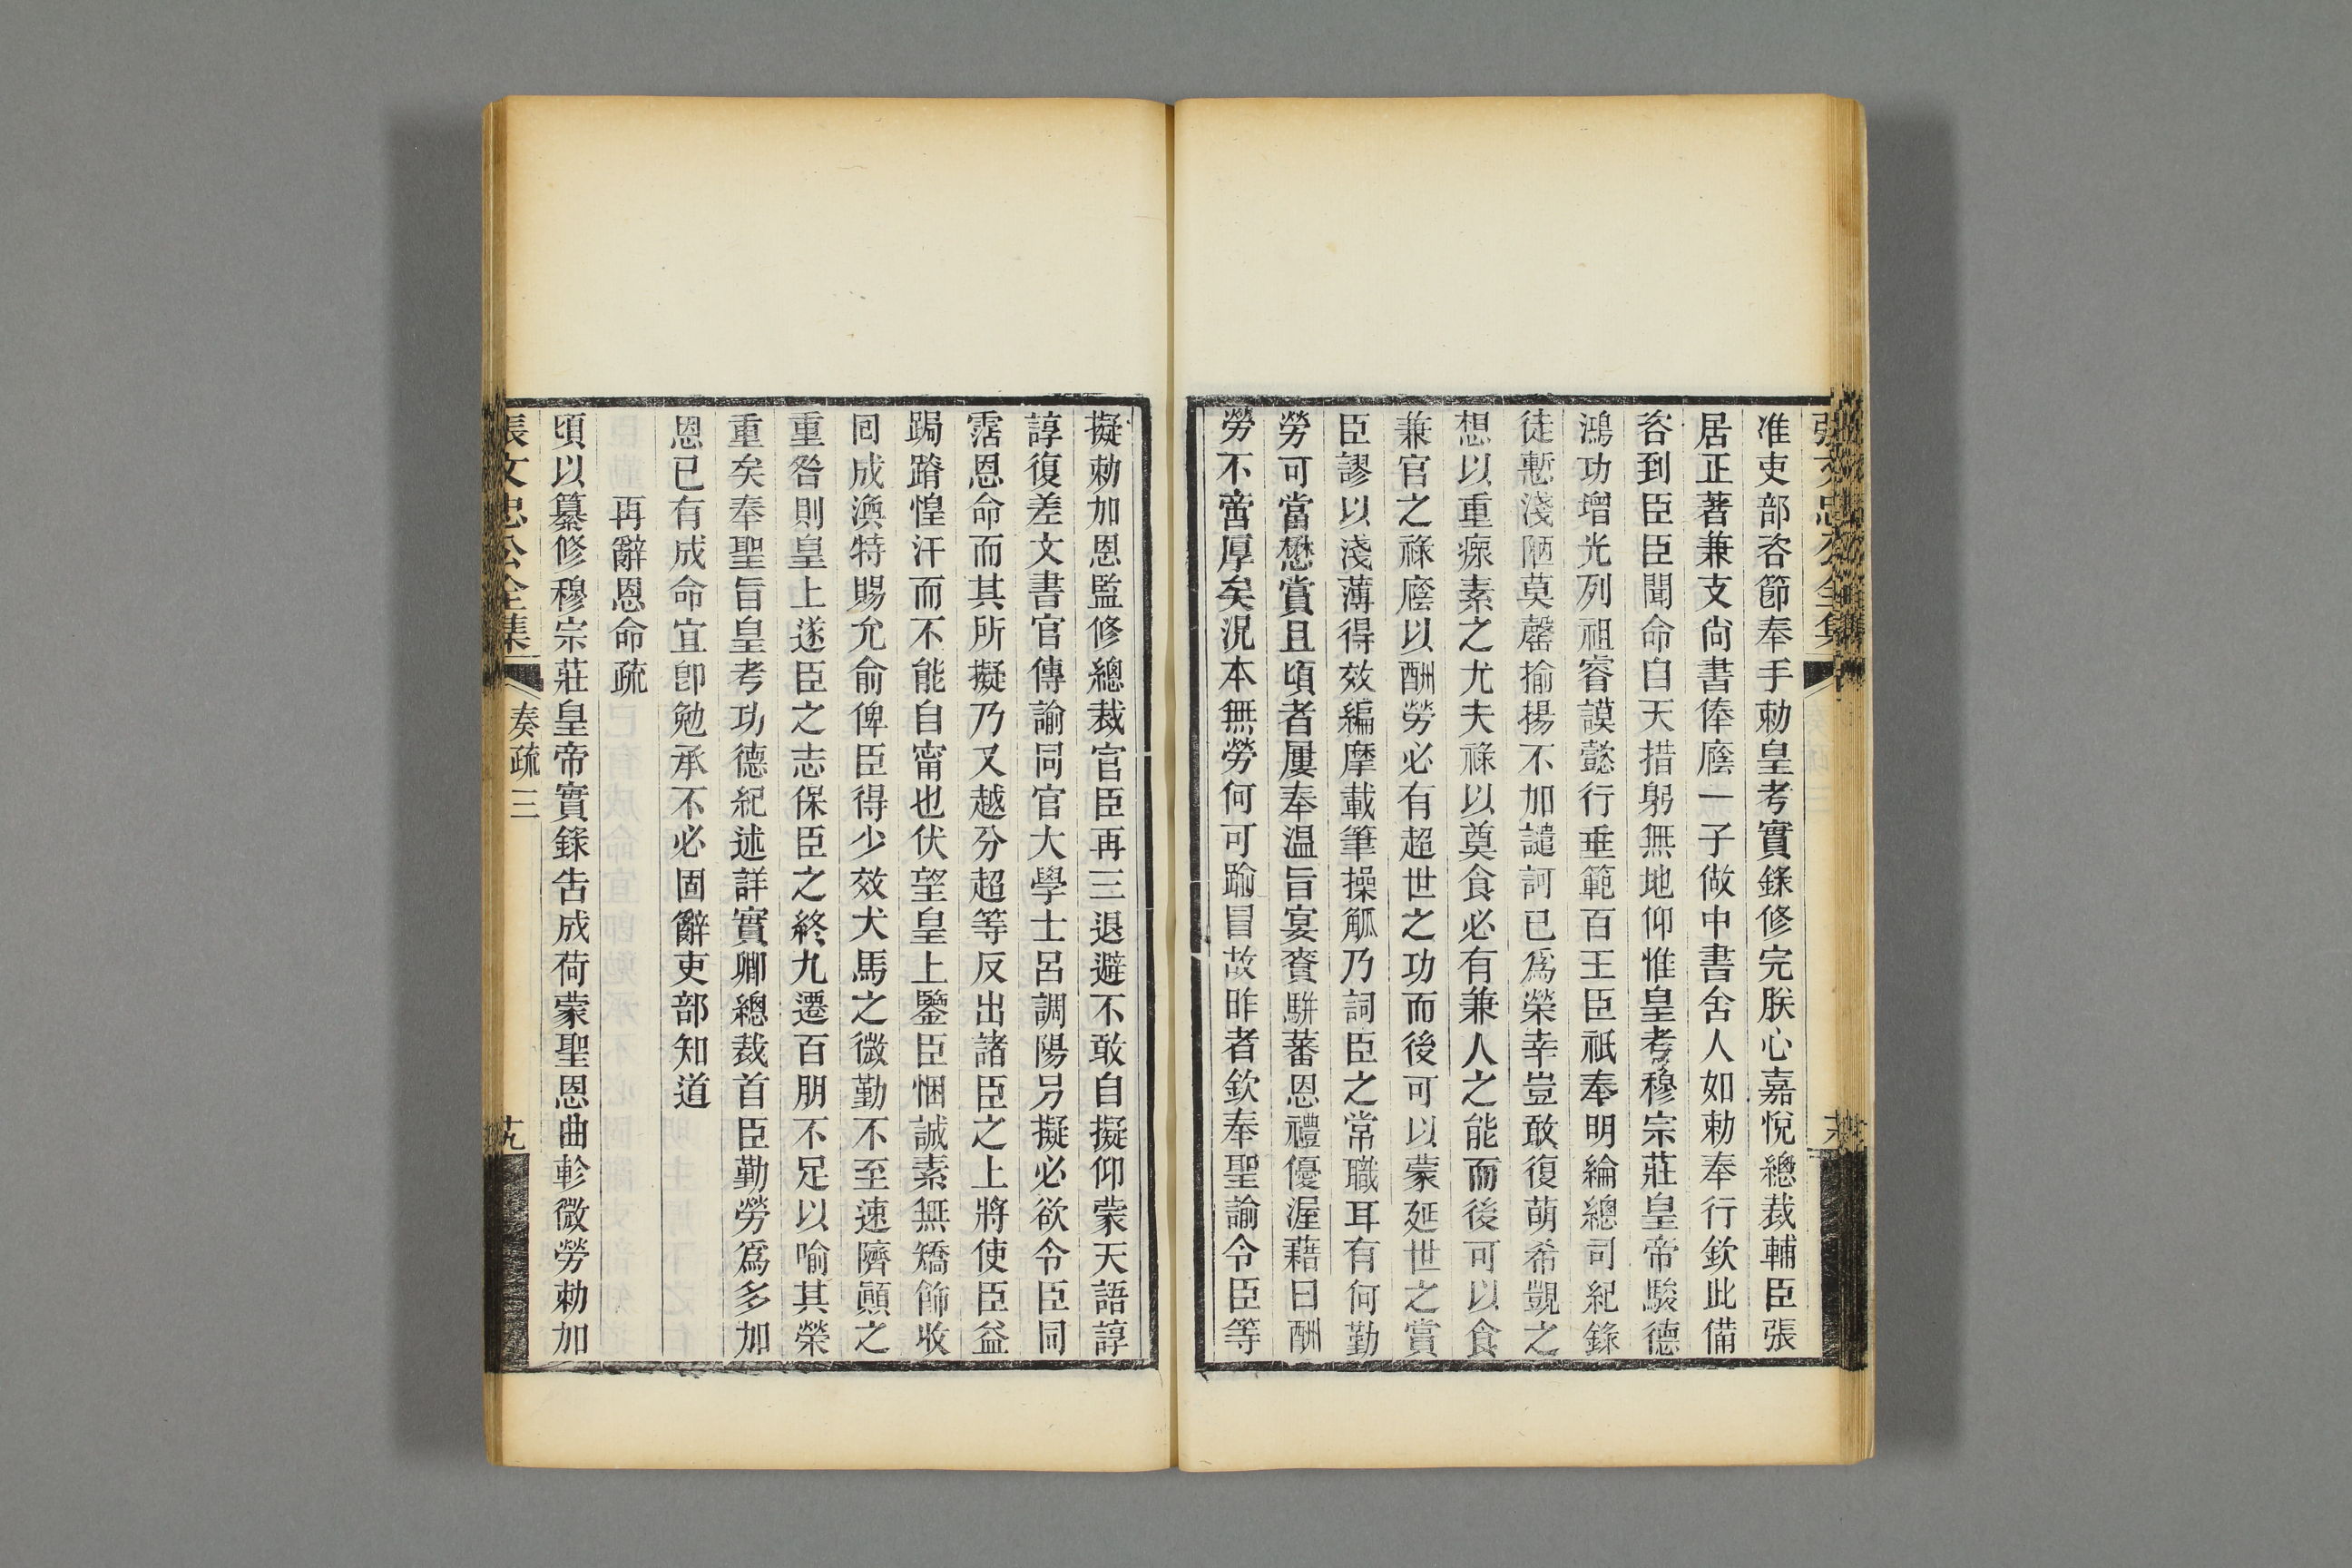 准吏部咨節奉手勅皇考實錄修完朕心嘉悅總裁輔臣張
居正著兼支尚書俸廕一子做中書舍人如勅奉行欽此備
咨到臣臣聞命自天措躬無地仰惟皇考穆宗莊皇帝駿德
鴻功增光列祖睿謨懿行垂範百王臣祇奉明綸總司紀錄
徒慙淺陋莫罄揄揚不加譴訶已爲榮幸豈敢復萌希覬之
想以重瘝素之尤夫祿以奠食必有兼人之能而後可以食
兼官之祿廕以酬勞必有超世之功而後可以蒙延世之賞
臣謬以淺薄得效編摩載筆操觚乃詞臣之常職耳有何勤
勞可當懋賞且頃者屢奉溫旨宴賚駢蕃恩禮優渥藉曰酬
勞不啻厚矣況本無勞何可踰冒故昨者欽奉聖諭令臣等
擬勅加恩監修總裁官臣再三退避不敢自擬仰蒙天語諄
諄復差文書官傳諭同官大學士呂調陽另擬必欲令臣同
霑恩命而其所擬乃又越分超等反出諸臣之上將使臣益
跼蹐惶汗而不能自甯也伏望皇上鑒臣悃誠素無矯飾收
囘成渙特賜允俞俾臣得少效犬馬之微勤不至速隮顚之
重咎則皇上遂臣之志保臣之終九遷百朋不足以喻其榮
重矣奉聖旨皇考功德紀述詳實卿總裁首臣勤勞爲多加
恩已有成命宜卽勉承不必固辭吏部知道
再辭恩命疏
頃以纂修穆宗莊皇帝實錄告成荷蒙聖恩曲軫微勞勅加
張文忠公全集 奏疏三